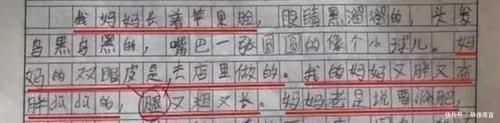 我妈妈长着苹果脸，眼睛黑溜溜的，头发
乌黑乌黑的，嘴巴一张圆圆的像个小球儿。妈
妈的双眼皮是去店里做的。我的妈妈又胖又高
胖dūdū的，腿又粗又长。妈妈老是说要减肥，
快传号 / 静雅落言